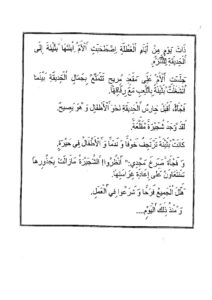 ذَاتَ يَوْمٍ مِنْ أَيَّامِ الْعُطْلَةِ اصْطَحَبَتِ الْأُمُّ ابْنَتَهَا بُثَيْنَةَ إِلَى
الْحَدِيقَةِ لِلتَّنَزُّهِ.
جَلَسَتِ الْأُمُّ عَلَى مَقْعَدٍ مُرِيحٍ تَتَمَتَّعُ بِجَمَالِ الْحَدِيقَةِ بَيْنَمَا
انْشَغَلَتْ بُثَيْنَةُ بِاللَّعِبِ مَعَ رِفَاقِهَا.
فَجْأَةً، أَقْبَلَ حَارِسُ الْحَدِيقَةِ نَحْوَ الْأَطْفَالِ وَ هُوَ يَصِيحُ:
لَقَدْ وَجَدْتُ شُجَيْرَةً مُقْتَلَعَةً.
كَانَتْ بُثَيْنَةُ تَرْتَجِفُ خَوْفًا وَ نَدَمًا وَ الْأَطْفَالُ فِي حَيْرَةٍ.
وَ فَجْأَةً صَرَخَ مَجْدِي:" انْظُرُوا! الشُّجَيْرَةُ مَازَالَتْ بِجُذُورِهَا
سَنَتَعَاوَنُ عَلَى إِعَادَةِ غِرَاسَتِهَا.
هَلَّلَ الْجَمِيعُ فَرَحًا وَ شَرَعُوا فِي الْعَمَلِ.
وَ مُنْذُ ذَلِكَ الْيَوْمِ....